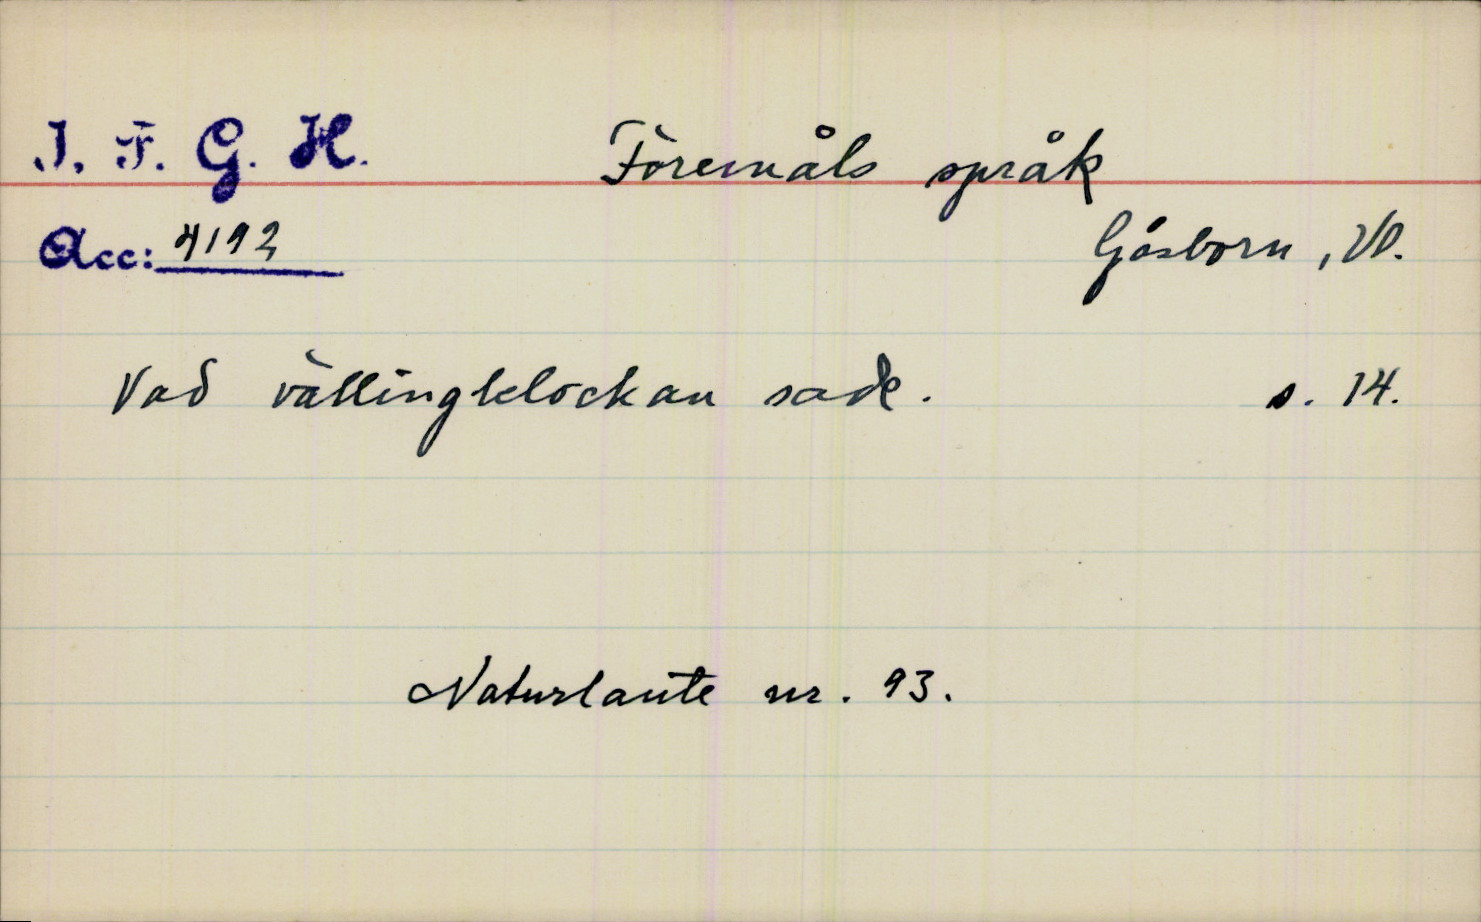 I. F. G. H.
Föremåls språk
Acc: 4192
Gåsborn, Vl.
Vad vällingklockan sade. s. 14.
Naturlaute nr. 93.